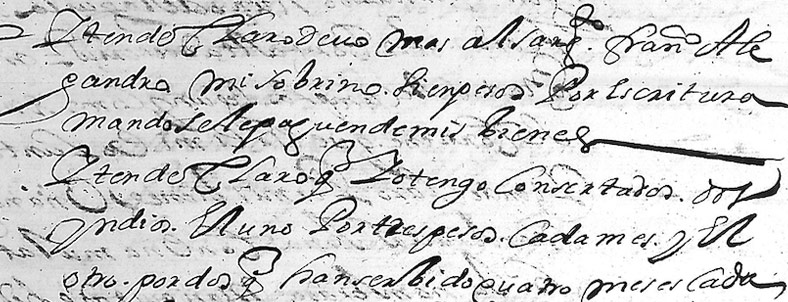 Yten declaro devo mas al sarg.to Fran.co Ale
gandro mi sobrino sien pesos por escritura
mando se le paguen de mis bienes
Yten declaro q yo tengo consertados dos
yndios el uno por tres pesos cada mes y el
otro por dos q han serbido quatro meses cada